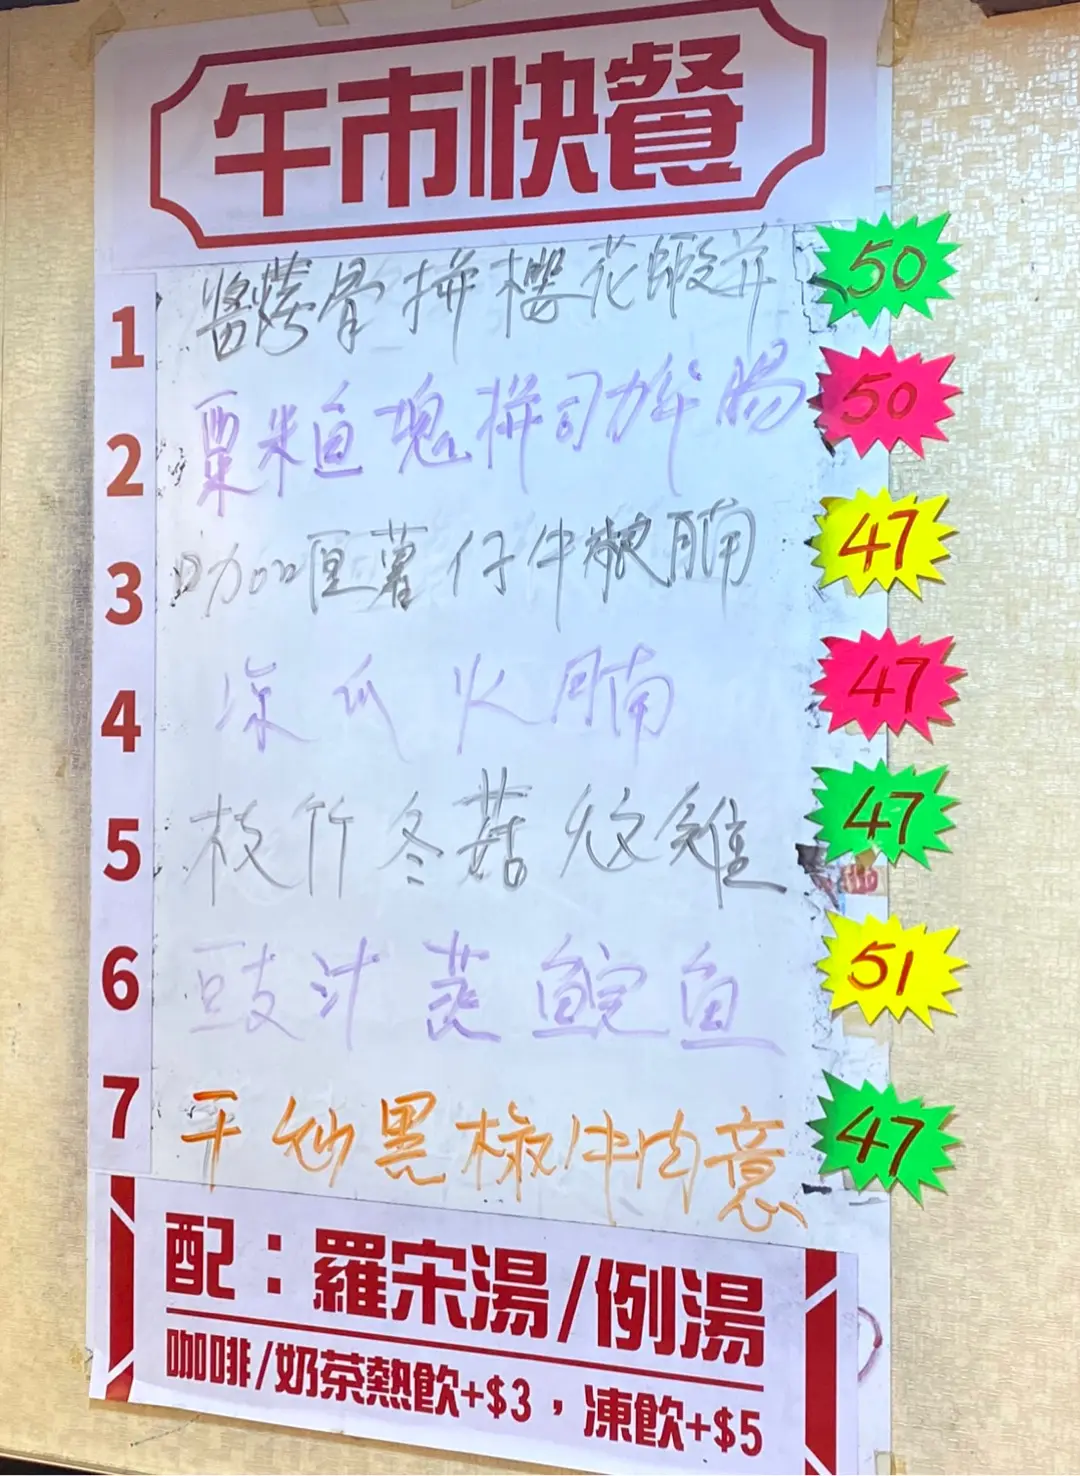 午市快餐
1 醬烤骨拼櫻花蝦并 50
2 粟米鱼塊拼司 腸 50
3 咖喱薯仔牛 腩 47
4 凉瓜火腩 47
5 枝竹冬菇炆雞 47
6 豉汁蒸鯇鱼 51
7 干炒黑椒牛肉意 47
配：羅宋湯/例湯
咖啡/奶茶熱飲+$3，凍飲+$5